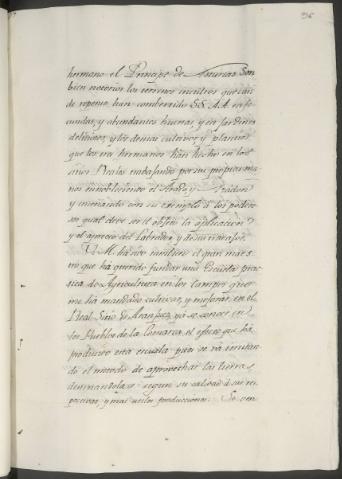 96
hermano el Principe de Asturias Son
bien notorios los terrenos incultos que
de repente han combertido SS. AA. en fe
cundas, y abundantes huertas, y en Jardines
deliciosos, y los demas cultivos, y plantios
que los tres hermanos han hecho en los
sitios Reales trabajando por sus propias ma
nos ennobleciendo el Arado, y Azadon
y enseñando con su exemplo à los podero
sos qual debe ser el objeto la aplicacion
y el aprecio del Labrador, y de sus
V. M. ha sido tambien el gran maes
tro que ha querido fundar una Escuela prac
tica de Agricultura en los campos que
me ha mandado cultivar, y mejorar en el
Real Sitio de Aranjuez ya se conoce en
los Pueblos de la Comarca el efecto que ha
producido esta escuela pues se va imitan
do el metodo de aprovechar las tierras
destinandolas segun su calidad à sus res
pectivas, y mas utiles producciones. Se ven